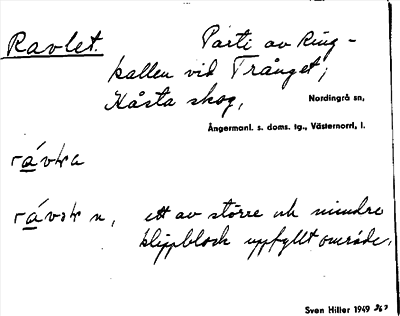 Ravlet. Parti av Ring-
kallen vid Trånget,
Kåsta skog, Nordingrå sn,
Ångermanl. s. doms. tg., Västernorrl, l.
ett av större och mindre
klippblock uppfyllt område.
Sven Hiller 1949